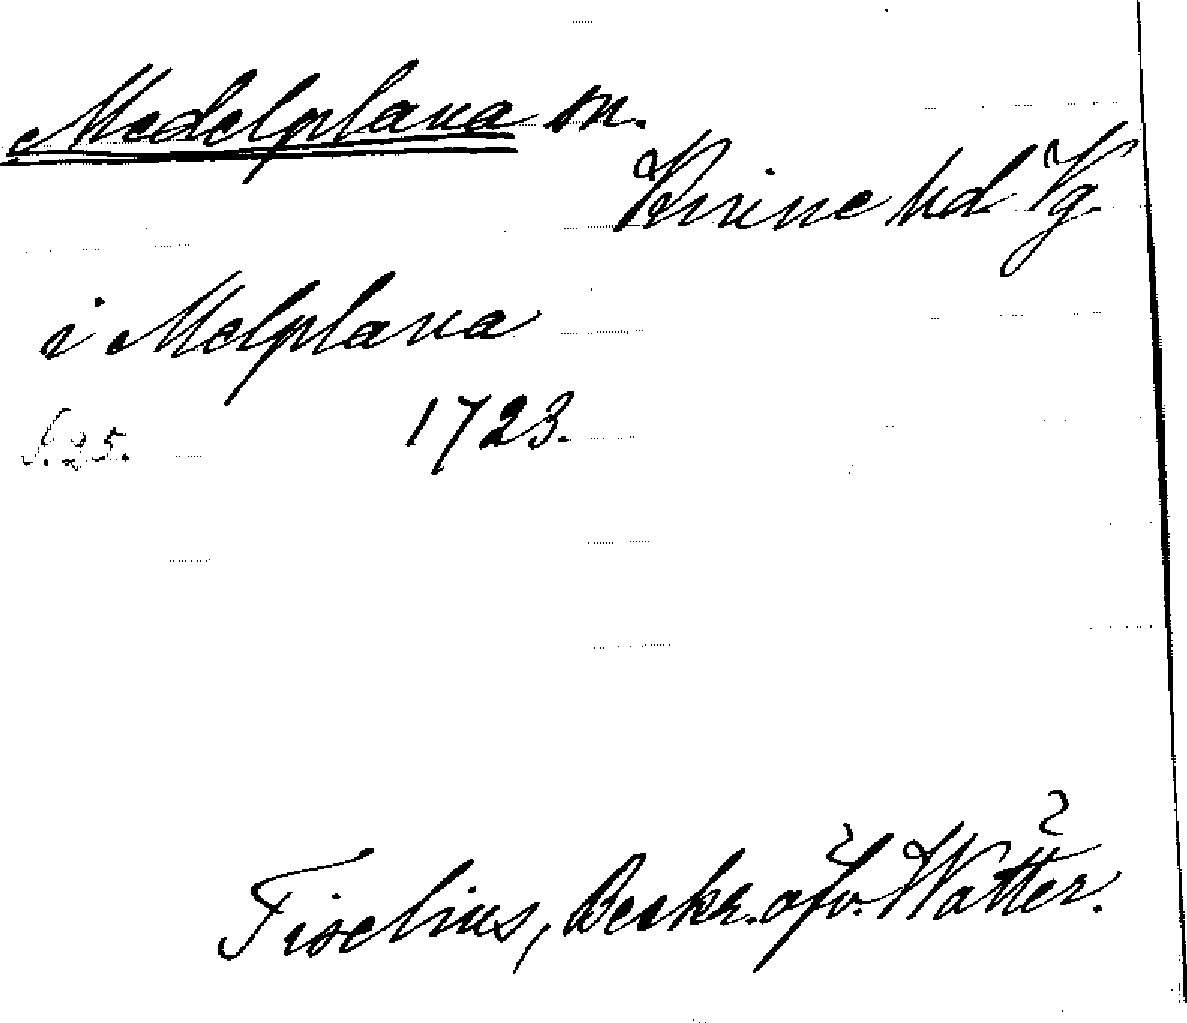 Medelplana sn.
Kinne hd Vg.
i Melplana
S. 25. 1723.
Tiselius, Beskr. öfv. Wätter.